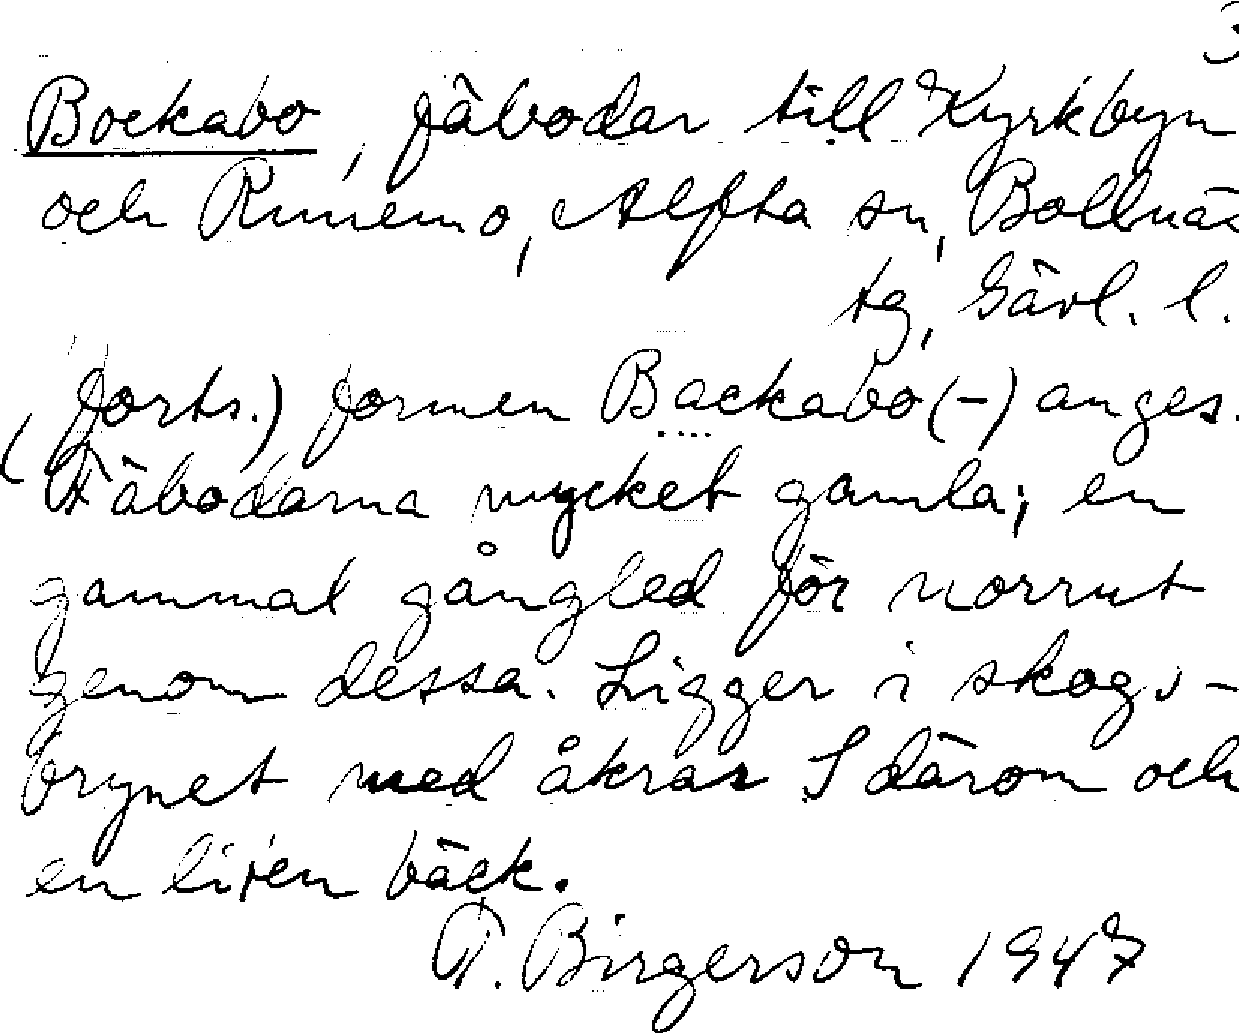 3
Bockabo, fäbodar till Kyrkbyn
och Runemo, Alfta sn, Bollnäs
tg, Gävl. l.
(forts.) formen Backabo(-) anges.
Fäbodarna mycket gamla; en
gammal gångled för norrut
genom dessa. Ligger i skogs-
brynet med åkrar S därom och
en liten bäck.
T. Birgerson 1947